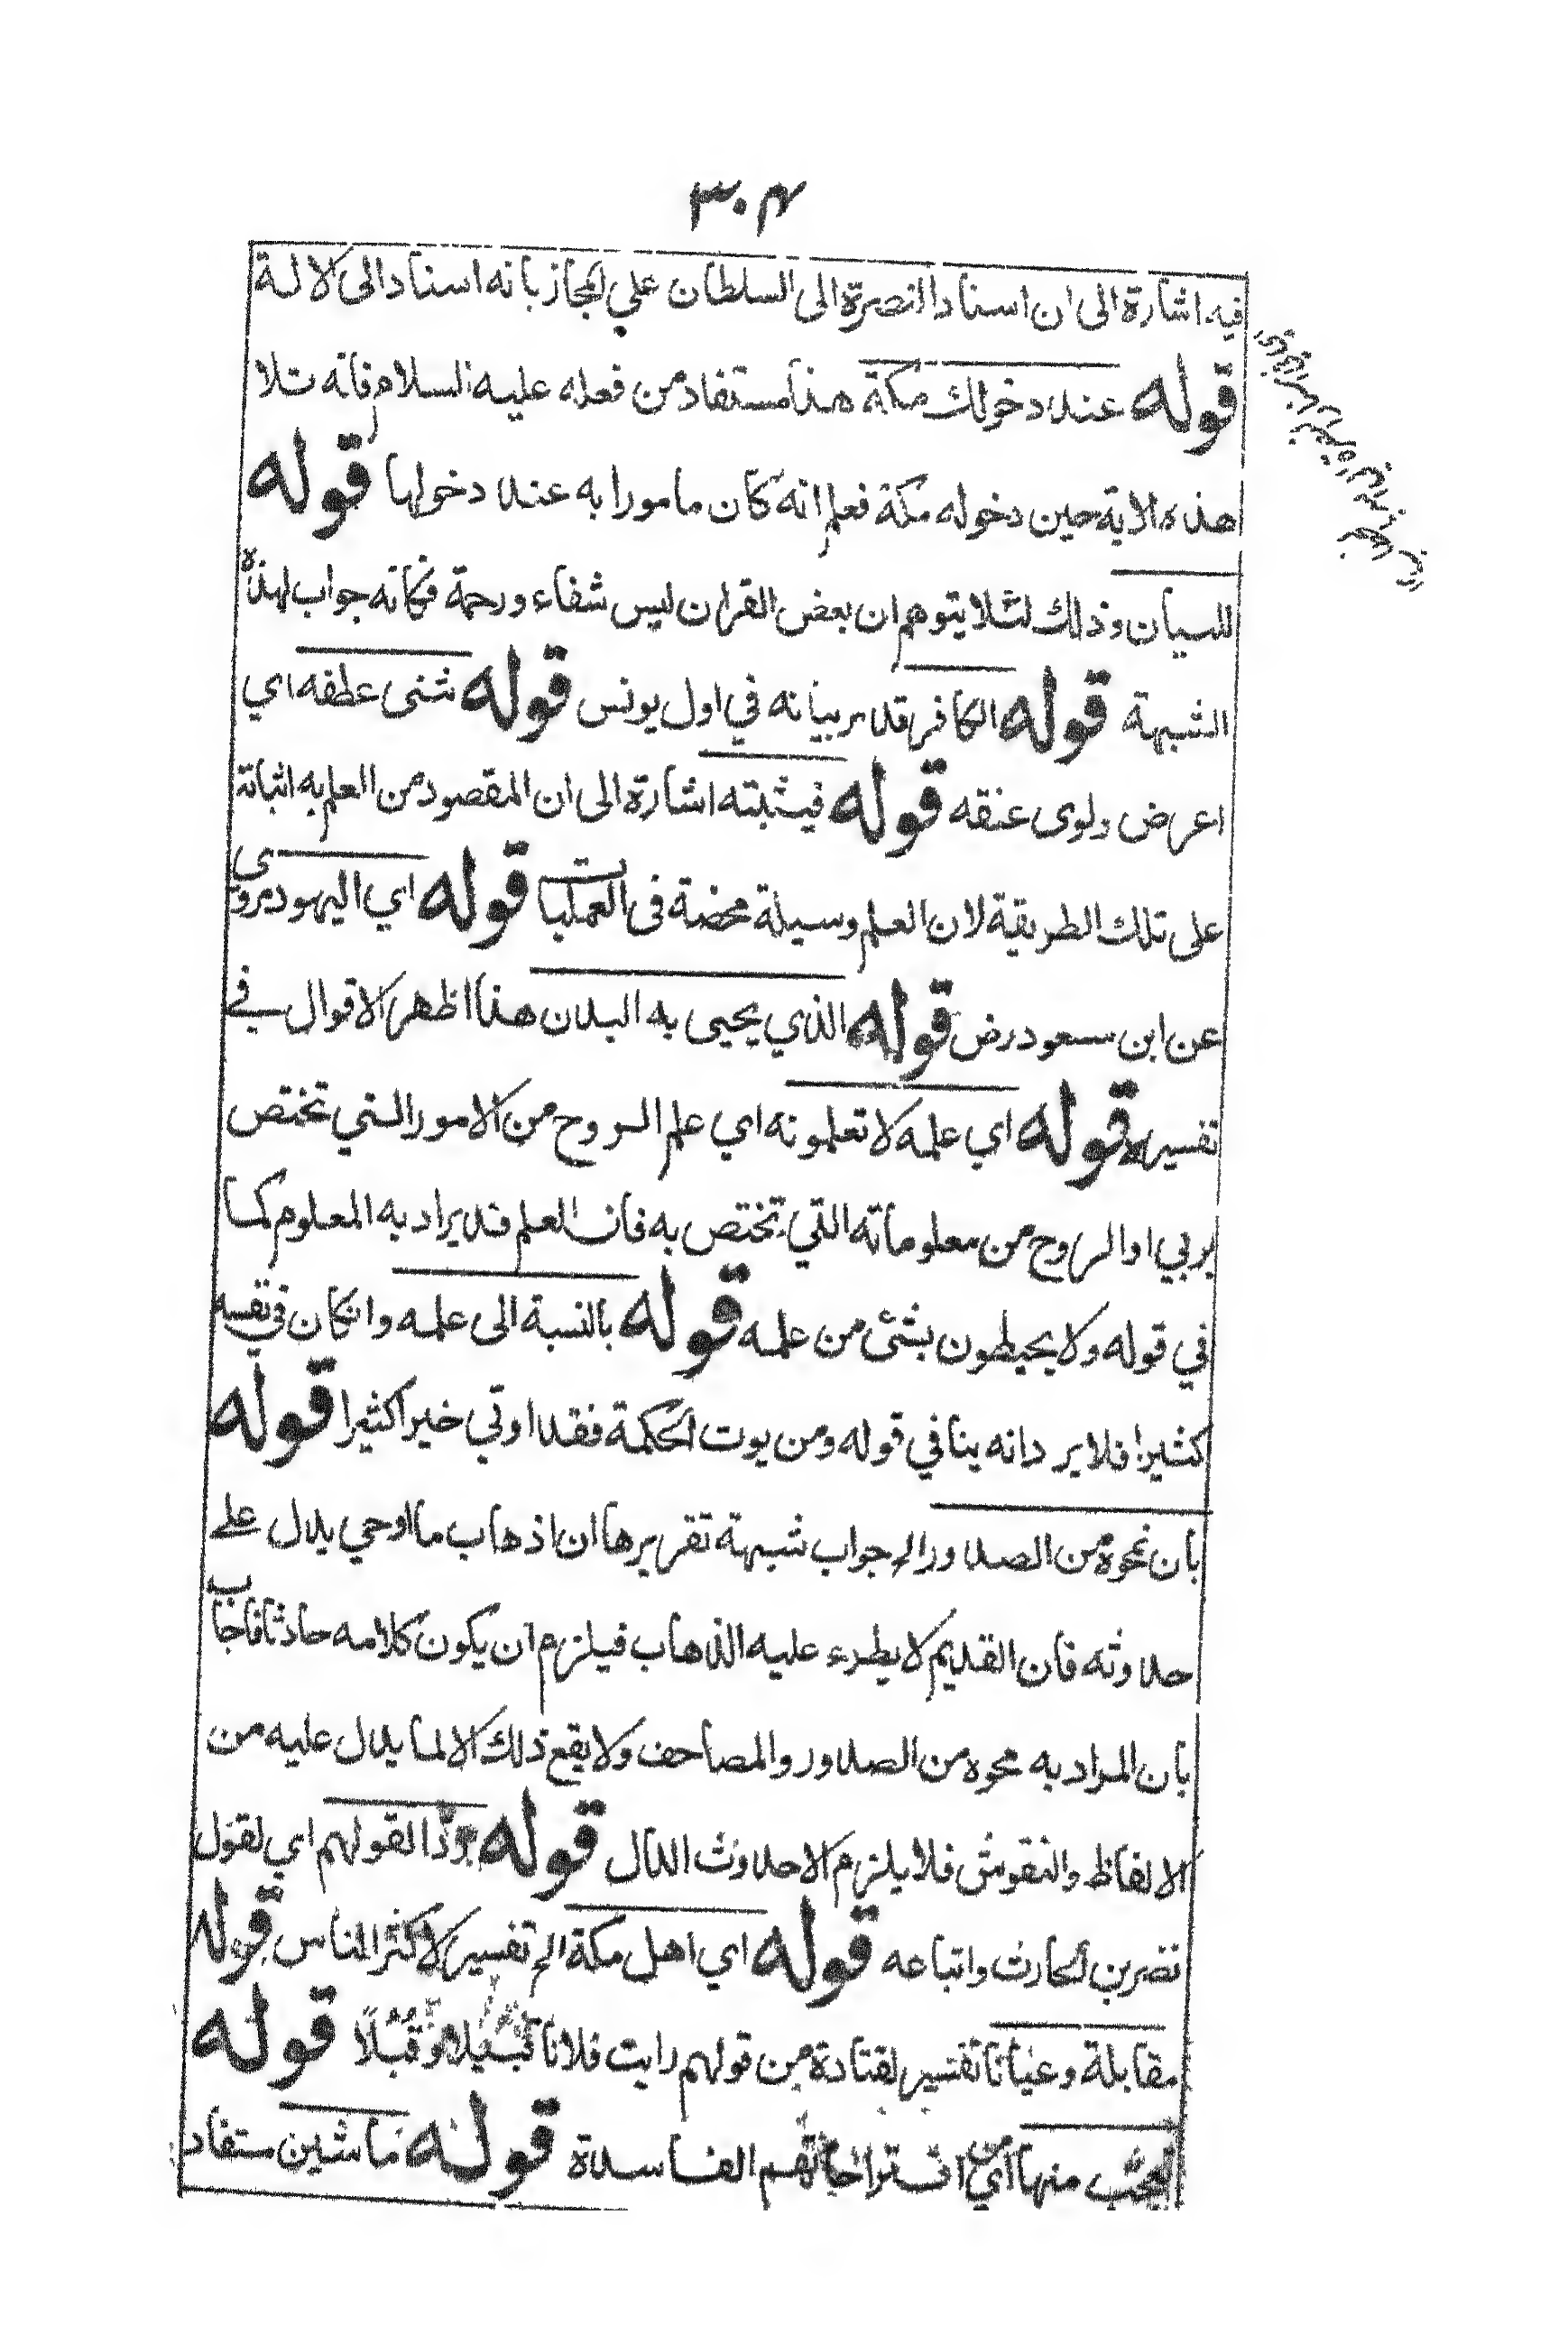 ٣٠٤
فيه اشارة الى ان اسناد النصرة الى السلطان علي المجاز بانه اسناد الى الالة
قوله عند دخولك مكة هذا مستفاد من فعله عليه السلام فانه تلا
هذه الاية حين دخوله مكة فعلم انه كان مامورا به عند دخولها قوله
للبيان وذلك لئلا يتوهم ان بعض القران ليس شفاء ورحمة فكانه جواب لهذه
الشبهة قوله الكافر قد مر بيانه في اول يونس قوله ثنى عطفه اي
اعرض ولوى عنقه قوله فيثبته اشارة الى ان المقصود من العلم به اثباته
على تلك الطريقة لان العلم وسيلة محضة فى العمليات قوله اي اليهود مروي
عن ابن مسعود رض قوله الذي يحيى به البدن هذا اظهر الاقوال في
تفسيره قوله اي علمه لا تعلمونه اي علم الروح من الامور التي تختص
بربي او الروح من معلوماته التي تختص به فان العلم قد يراد به المعلوم كما
في قوله ولا يحيطون بشئ من علمه قوله بالنسبة الى علمه وانكان في نفسه
كثيرا فلا يرد انه ينافي قوله ومن يوت الحكمة فقد اوتي خيرا كثيرا قوله
بان نمحوه من الصدور الخ جواب شبهة تقريرها ان اذهاب ما اوحي يدل على
حدوثه فان القديم لا يطرء عليه الذهاب فيلزم ان يكون كلامه حادثا فاجاب
بان المراد به محوه من الصدور والمصاحف ولا يقع ذلك الا لما يدل عليه من
الالفاظ والنقوش فلا يلزم الا حدوث الدال قوله ردا لقولهم اي لقول
نضر بن الحارث واتباعه قوله اي اهل مكة الخ تفسير لاكثر الناس قوله
مقابلة وعيانا تفسير لقتادة من قولهم رايت فلانا قبيلا وقبلا قوله
تعجب منها اي من اقتراحاتهم الفاسدة قوله ماشين مستفاد